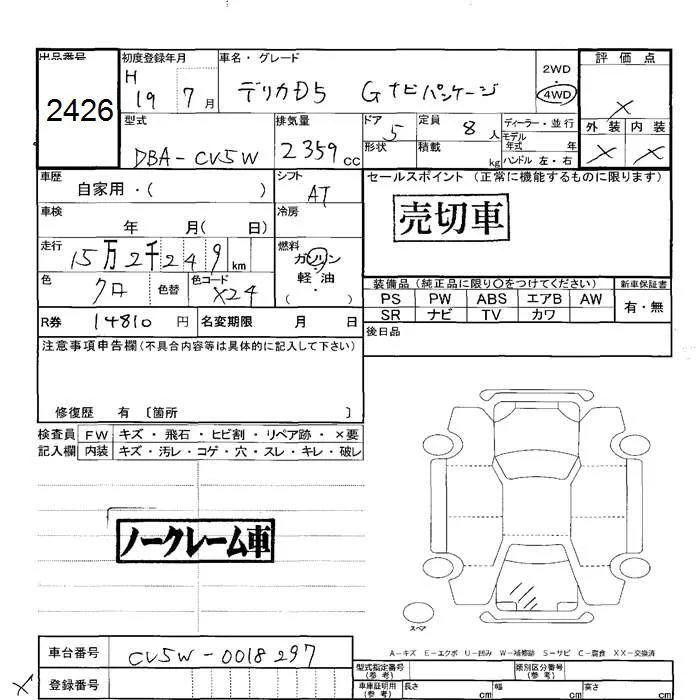 出品番号 初度登録年月 車名・グレード 2WD 評価点
2426 H 19 7月 デリカD5 Gナビパッケージ 4WD X
外装 内装
X X
型式 排気量 ドア 定員 ディーラー・並行
DBA-CV5W 2359cc 5 8人 モデル年式 年
形状 積載 kg ハンドル 左・右
車歴 自家用・( ) シフト AT セールスポイント (正常に機能するものに限ります)
車検 年 月( 日) 冷房 売切車
走行 15万2千249km 燃料 ガソリン
軽油
( ・ )
色 クロ 色替 色コード X24 装備品 (純正品に限り〇をつけてください) 新車保証書
PS PW ABS エアB AW 有・無
SR ナビ TV カワ
R券 14810円 名変期限 月 日 後日品
注意事項申告欄(不具合内容等は具体的に記入して下さい)
修復歴 有 〔箇所 〕
検査員 FW キズ・飛石・ヒビ割・リペア跡・×要
記入欄 内装 キズ・汚レ・コゲ・穴・スレ・キレ・破レ
ノークレーム車
スペア
A-キズ E-エクボ U-凹み W-補修跡 S-サビ C-腐食 XX-交換済
車台番号 CV5W-0018297 型式指定番号(参考) 類別区分番号(参考)
X 登録番号 車庫証明用(参考) 長さ cm 幅 cm 高さ cm